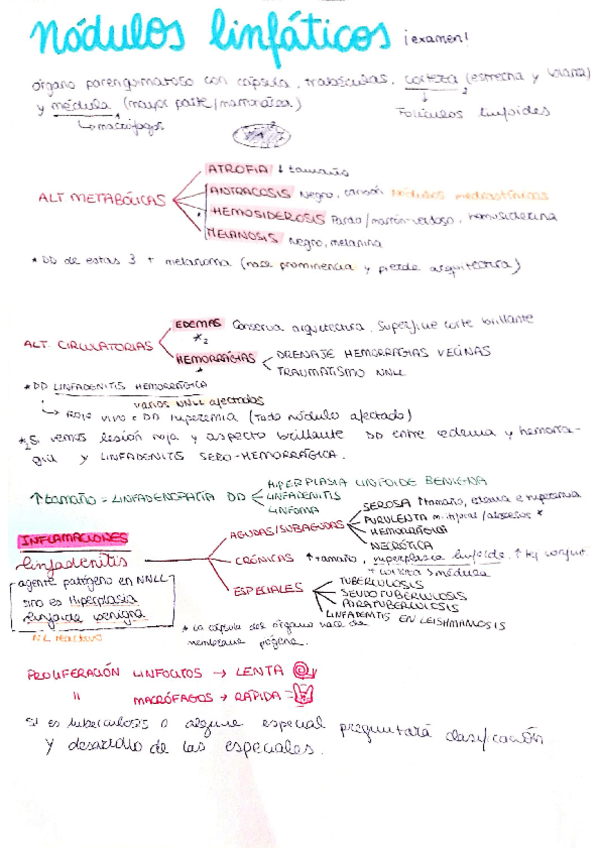 nódulos linfáticos ¡examen!
órgano parenquimatoso con cápsula, trabéculas, corteza (estrecha y
y médula (mayor parte/mamonaza)
macrófagos
Folículos linfoides
ATROFIA ↓ tamaño
ANTRACOSIS Negro, carbón Nódulos mediastínicos
ALT METABÓLICAS
HEMOSIDEROSIS Pardo/marrón-verdoso, hemosiderina
MELANOSIS Negro, melanina
* DD de estas 3 + melanoma (hace prominencia y pierde arquitectura)
EDEMAS Conserva arquitectura. Superficie corte brillante
*2
ALT. CIRCULATORIAS
HEMORRAGIAS
DRENAJE HEMORRAGIAS VECINAS
TRAUMATISMO NNLL
* DD LINFADENITIS HEMORRÁGICA
varios NNLL afectados
Rojo vivo = DD hiperemia (todo nódulo afectado)
*2 Si vemos lesión roja y aspecto brillante DD entre edema y hemorra-
gia y LINFADENITIS SERO-HEMORRÁGICA.
HIPERPLASIA LINFOIDE BENIGNA
↑tamaño = LINFADENOPATÍA DD
LINFADENITIS
LINFOMA
SEROSA ↑tamaño, edema e hiperemia
INFLAMACIONES
AGUDAS/SUBAGUDAS
PURULENTA multifocal/abscesos *
HEMORRÁGICA
NECRÓTICA
linfadenitis
CRÓNICAS ↑tamaño, hiperplasia linfoide, ↑ tej conjun.
+ corteza s médula
agente patógeno en NNLL
sino es Hiperplasia
linfoide benigna
NL reactivo
ESPECIALES
TUBERCULOSIS
SEUDOTUBERCULOSIS
PARATUBERCULOSIS
LINFADENITIS EN LEISHMANIOSIS
* La cápsula del órgano hace de
membrana piógena.
PROLIFERACIÓN LINFOCITOS → LENTA
" MACRÓFAGOS → RÁPIDA =
Si es tuberculosis o alguna especial preguntará clasificación
y desarrollo de las especiales.